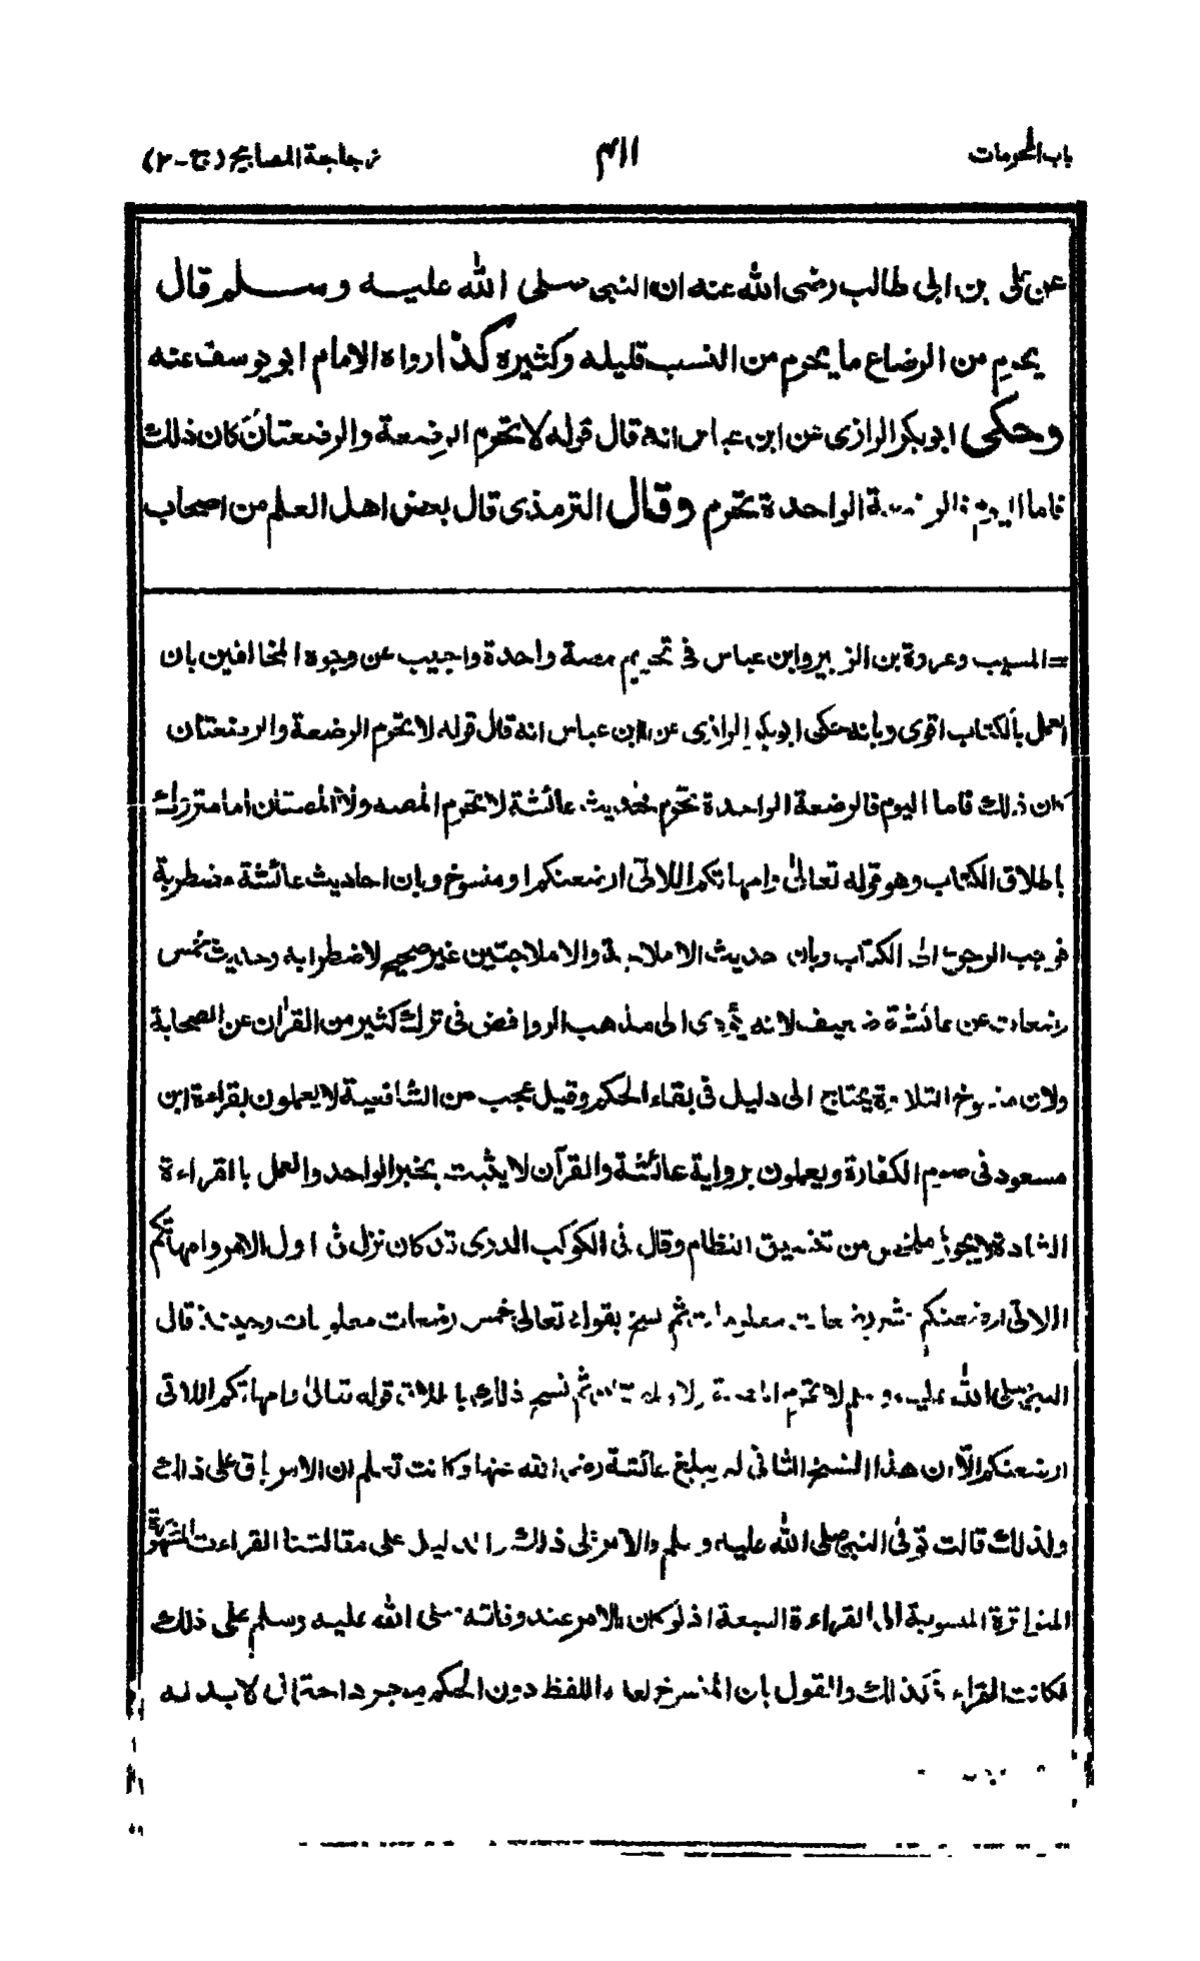 باب المحرمات
٣١١
زجاجة المصابيح (ج-٢)
عن علي بن ابي طالب رضي الله عنه ان النبي صلى الله عليه وسلم قال
يحرم من الرضاع ما يحرم من النسب قليله وكثيره كذا رواه الامام ابو يوسف عنه
وحكى ابو بكر الرازى عن ابن عباس انه قال قوله لا تحرم الرضعة والرضعتان كان ذلك
فاما اليوم فالرضعة الواحدة تحرم وقال الترمذى قال بعض اهل العلم من اصحاب
=المسيب وعروة بن الزبير وابن عباس فى تحريم مصة واحدة واجيب عن وجوه المخالفين بان
العمل بالكتاب اقوى وبانه حكى ابو بكر الرازى عن ابن عباس انه قال قوله لا تحرم الرضعة والرضعتان
كان ذلك فاما اليوم فالرضعة الواحدة تحرم فحديث عائشة لا تحرم المصه ولا المصتان اما متروك
باطلاق الكتاب وهو قوله تعالى وامهاتكم اللاتى ارضعنكم او منسوخ وبان احاديث عائشة مضطربة
فوجب الرجوع الى الكتاب وبان حديث الاملاجة والاملاجتين غير صحيح لاضطرابه وحديث خمس
رضعات عن عائشة ضعيف لانه يؤدى الى مذهب الروافض فى ترك كثير من القرآن عن الصحابة
ولان منسوخ التلاوة يحتاج الى دليل فى بقاء الحكم وقيل عجب من الشافعية لا يعملون بقراءة ابن
مسعود فى صوم الكفارة ويعملون برواية عائشة والقرآن لا يثبت بخبر الواحد والعمل بالقراءة
الشاذة لا يجوز ملخص من تنسيق النظام وقال فى الكوكب الدرى قد كان نزل فى اول الامر وامهاتكم
اللاتى ارضعنكم عشر رضعات معلومات ثم نسخ بقوله تعالى خمس رضعات معلومات وحينئذ قال
النبى صلى الله عليه وسلم لا تحرم المصة ولا المصتان ثم نسخ ذلك باطلاق قوله تعالى وامهاتكم اللاتى
ارضعنكم الا ان هذا النسخ الثانى لم يبلغ عائشة رضى الله عنها وكانت تعلم ان الامر باق على ذلك
ولذلك قالت توفى النبى صلى الله عليه وسلم والامر على ذلك والدليل على مقالتنا القراءت المشهورة
المتواترة المنسوبة الى القراءة السبعة اذ لو كان الامر عند وفاته صلى الله عليه وسلم على ذلك
لكانت القراءة كذلك والقول بان المنسوخ انما اللفظ دون الحكم مجرد احتمال لا بد له